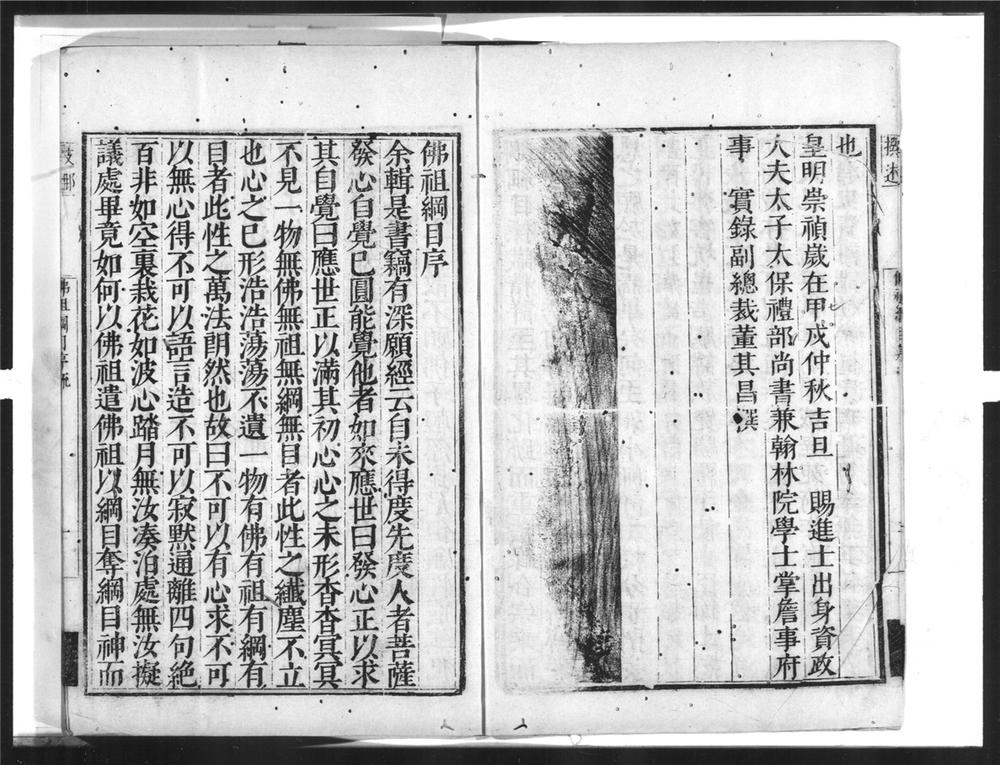 也
皇明崇禎歲在甲戌仲秋吉旦　賜進士出身資政
大夫太子太保禮部尚書兼翰林院學士掌詹事府
事　實錄副總裁董其昌撰
佛祖綱目序
余輯是書竊有深願經云自未得度先度人者菩薩
發心自覺已圓能覺他者如來應世曰發心正以求
其自覺曰應世正以滿其初心心之未形杳杳冥冥
不見一物無佛無祖無綱無目者此性之纖塵不立
也心之已形浩浩蕩蕩不遺一物有佛有祖有綱有
目者此性之萬法朗然也故曰不可以有心求不可
以無心得不可以語言造不可以寂默通離四句絕
百非如空裏栽花如波心踏月無汝湊泊處無汝擬
議處畢竟如何以佛祖遣佛祖以綱目奪綱目神而